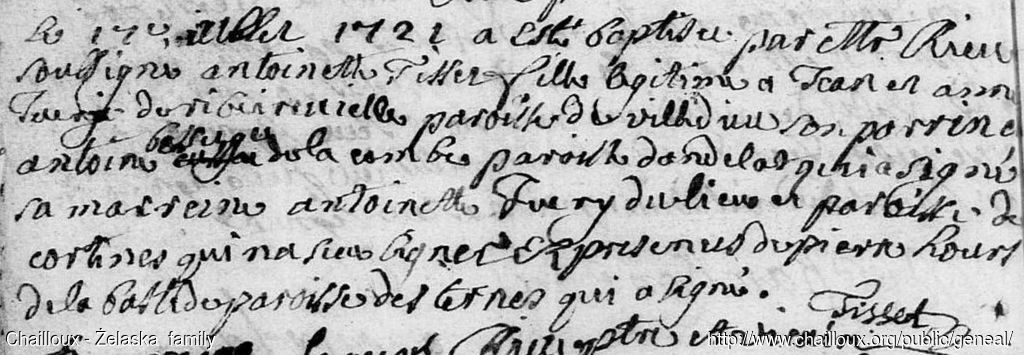 le 17e juillet 1721 a esté baptisée par Mre Rieu
soussigné antoinette Tisset fille legitime a Jean et ann
de ribeirevieille paroisse de villedieu son parrin a
antoine de la combe paroisse dandelat qui a signé
sa marreine antoinette du lieu et paroisse de
cortines qui na sceu signer Et presence de pierre hours
de la bastide paroisse des ternes qui a signé.
Tisset
Rieu ptre
Chailloux - Żelaska family
http://www.chailloux.org/public/geneal/